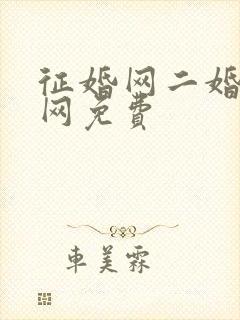 征婚网二婚
网免费
车美霖